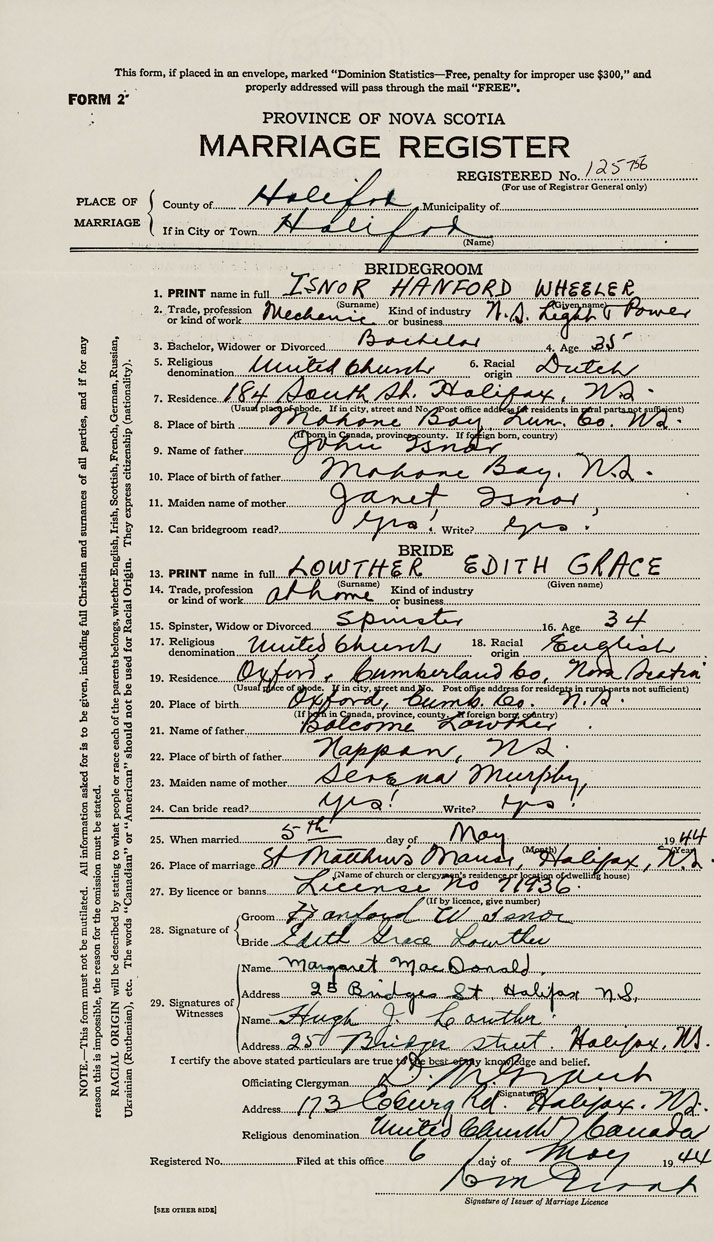 This form, if placed in an envelope, marked "Dominion Statistics—Free, penalty for improper use $300," and
properly addressed will pass through the mail "FREE".
FORM 2
PROVINCE OF NOVA SCOTIA
MARRIAGE REGISTER
REGISTERED No. 125756
(For use of Registrar General only)
PLACE OF MARRIAGE
County of Halifax Municipality of
If in City or Town Halifax
(Name)
BRIDEGROOM
1. PRINT name in full ISNOR HANFORD WHEELER
(Surname) (Given name)
2. Trade, profession or kind of work Mechanic Kind of industry or business N.S. Light & Power
3. Bachelor, Widower or Divorced Bachelor 4. Age 35
5. Religious denomination United Church 6. Racial origin Dutch
7. Residence 184 South St. Halifax, N.S.
(Usual place of abode. If in city, street and No. Post office address for residents in rural parts not sufficient)
8. Place of birth Mahone Bay, Lun. Co. N.S.
(If born in Canada, province, county. If foreign born, country)
9. Name of father John Isnor
10. Place of birth of father Mahone Bay, N.S.
11. Maiden name of mother Janet Isnor
12. Can bridegroom read? Yes! Write? Yes!
BRIDE
13. PRINT name in full LOWTHER EDITH GRACE
(Surname) (Given name)
14. Trade, profession or kind of work at home Kind of industry or business
15. Spinster, Widow or Divorced Spinster 16. Age 34
17. Religious denomination United Church 18. Racial origin English
19. Residence Oxford, Cumberland Co, Nova Scotia
(Usual place of abode. If in city, street and No. Post office address for residents in rural parts not sufficient)
20. Place of birth Oxford, Cumb. Co. N.S.
(If born in Canada, province, county. If foreign born, country)
21. Name of father Balcome Lowther
22. Place of birth of father Nappan, N.S.
23. Maiden name of mother Serena Murphy,
24. Can bride read? Yes! Write? Yes!
25. When married 5th day of May 1944
(Month) (Year)
26. Place of marriage St Matthews Manse, Halifax, N.S.
(Name of church or clergyman's residence or location of dwelling house)
27. By licence or banns License No 71936
(If by licence, give number)
28. Signature of
Groom Hanford W Isnor
Bride Edith Grace Lowther
29. Signatures of Witnesses
Name Margaret MacDonald,
Address 25 Bridges St, Halifax N.S,
Name Hugh J. Lowther
Address 25 Bridges Street. Halifax, N.S.
I certify the above stated particulars are true to the best of my knowledge and belief.
Officiating Clergyman D. M.
(Signature)
Address 173 Coburg Rd. Halifax. N.S.
Religious denomination United Church / Canada
Registered No. Filed at this office 6 day of May 1944
Signature of Issuer of Marriage Licence
[SEE OTHER SIDE]
NOTE.—This form must not be mutilated. All information asked for is to be given, including full Christian and surnames of all parties, and if for any
reason this is impossible, the reason for the omission must be stated.
RACIAL ORIGIN will be described by stating to what people or race each of the parents belongs, whether English, Irish, Scottish, French, German, Russian,
Ukrainian (Ruthenian), etc. The words "Canadian" or "American" should not be used for Racial Origin. They express citizenship (nationality).